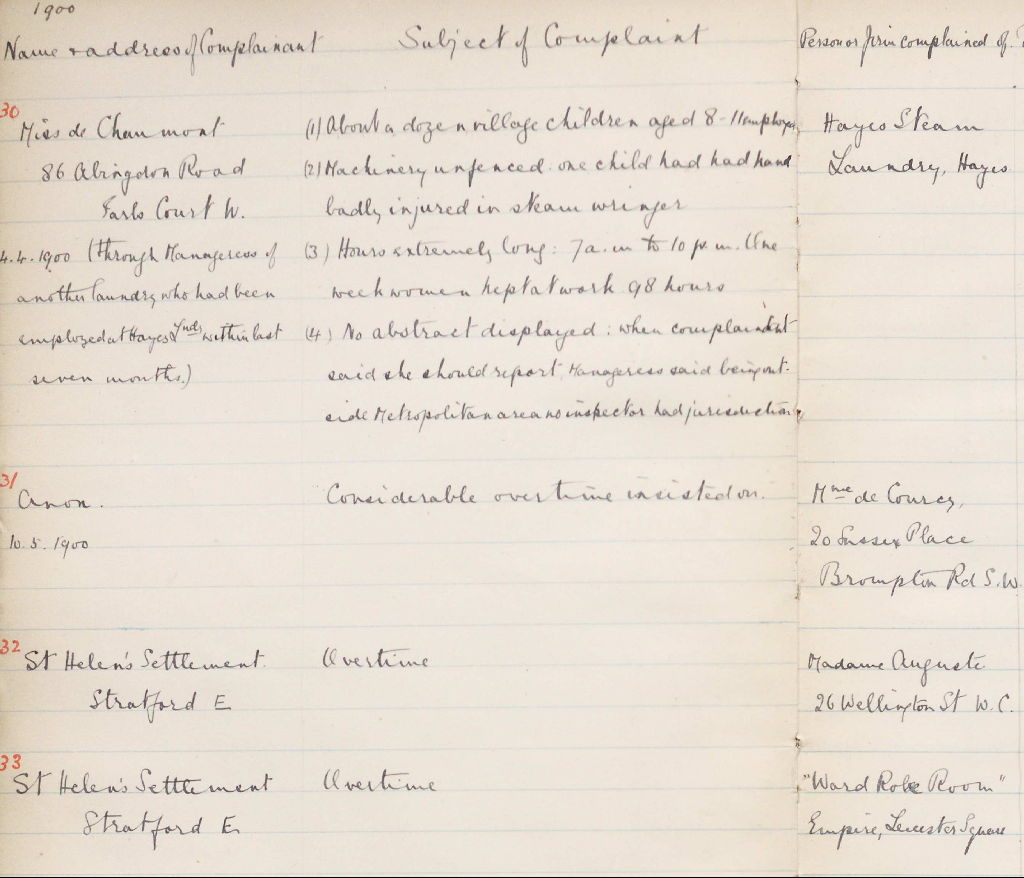 1900
Name & address of Complainant
Subject of Complaint
Person or firm complained of.
30
Miss de Chaumont
86 Abingdon Road
Earls Court W.
4.4.1900 (through Manageress of
another laundry who had been
employed at Hayes Lndy within last
seven months.)
(1) About a dozen village children aged 8-11 employed
(2) Machinery unfenced: one child had had hand
badly injured in steam wringer
(3) Hours extremely long: 7 a.m to 10 p.m. One
week women kept at work 98 hours
(4) No abstract displayed: when complainant
said she should report, Manageress said being out-
side Metropolitan area no inspector had jurisdiction
Hayes Steam
Laundry, Hayes
31
Anon.
10.5.1900
Considerable overtime insisted on.
Mme de Courcy,
20 Sussex Place
Brompton Rd S.W.
32
St Helen's Settlement.
Stratford E
Overtime
Madame Auguste
26 Wellington St W.C.
33
St Helen's Settlement
Stratford E.
Overtime
"Ward Robe Room"
Empire, Leicester Square